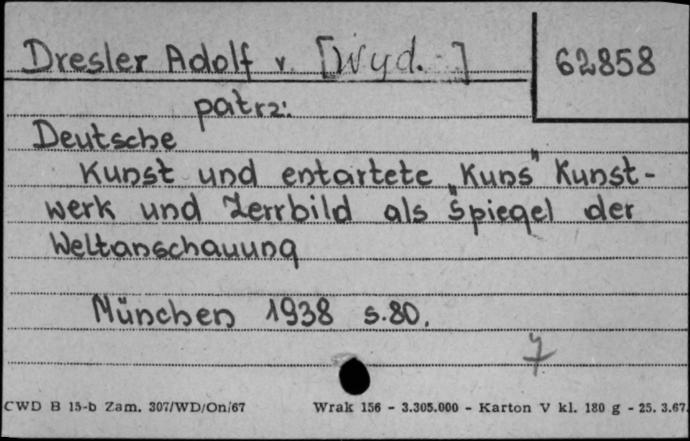 Dresler Adolf v. [Wyd. ] 62858
patrz:
Deutsche
Kunst und entartete "Kuns" Kunst-
werk und Zerrbild als Spiegel der
Weltanschauung
München 1938 s.80.
7
CWD B 15-b Zam. 307/WD/On/67 Wrak 156 - 3.305.000 - Karton V kl. 180 g - 25. 3.67.